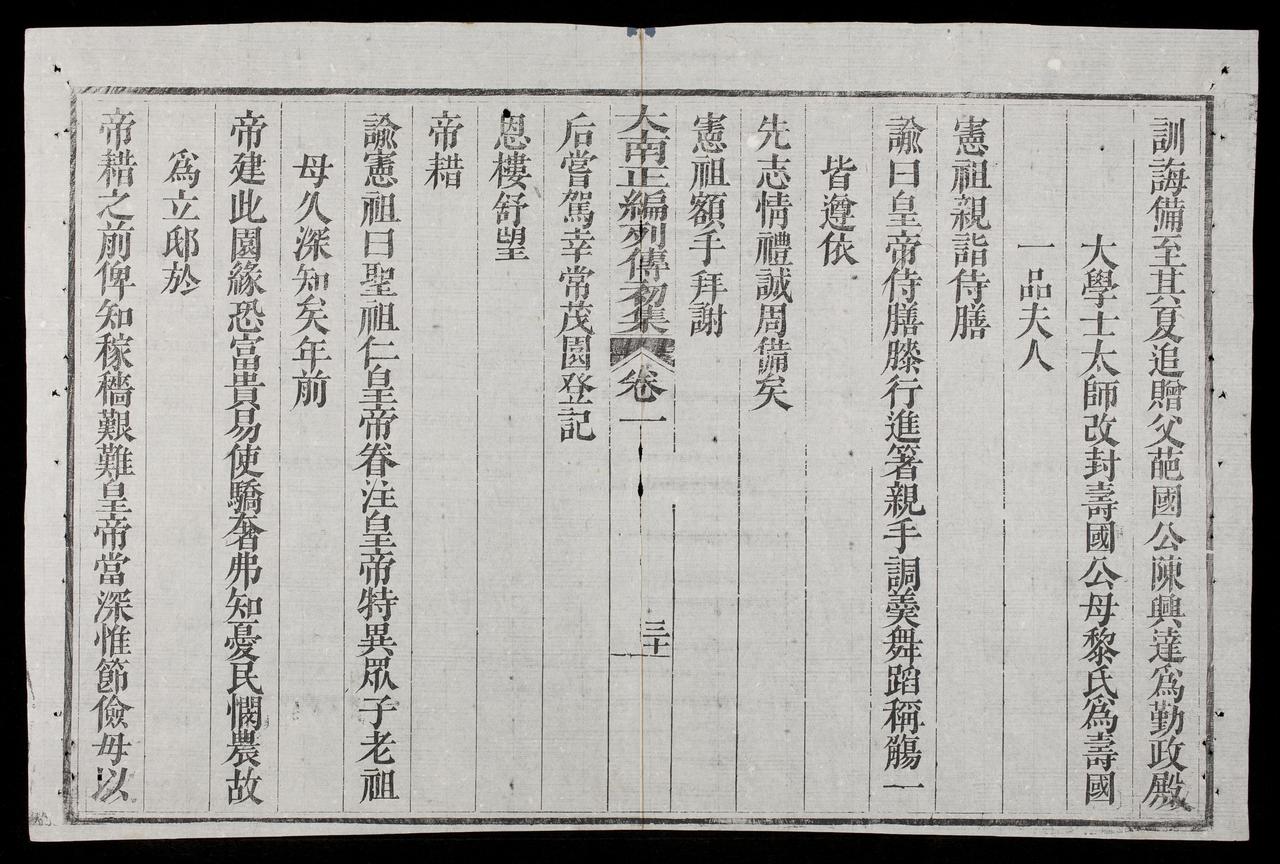 訓誨備至其夏追贈父葩國公陳興達爲勤政殿
大學士太師改封壽國公母黎氏爲壽國
一品夫人
憲祖親詣侍膳
諭曰皇帝侍膳膝行進箸親手調羹舞蹈稱觴一
皆遵依
先志情禮誠周備矣
憲祖額手拜謝
大南正編列傳初集 卷一 三十
后嘗駕幸常茂園登記
恩樓舒望
帝耤
諭憲祖曰聖祖仁皇帝眷注皇帝特異眾子老祖
母久深知矣年前
帝建此園緣恐富貴易使驕奢弗知憂民憫農故
爲立邸於
帝耤之前俾知稼穡艱難皇帝當深惟節儉毋以